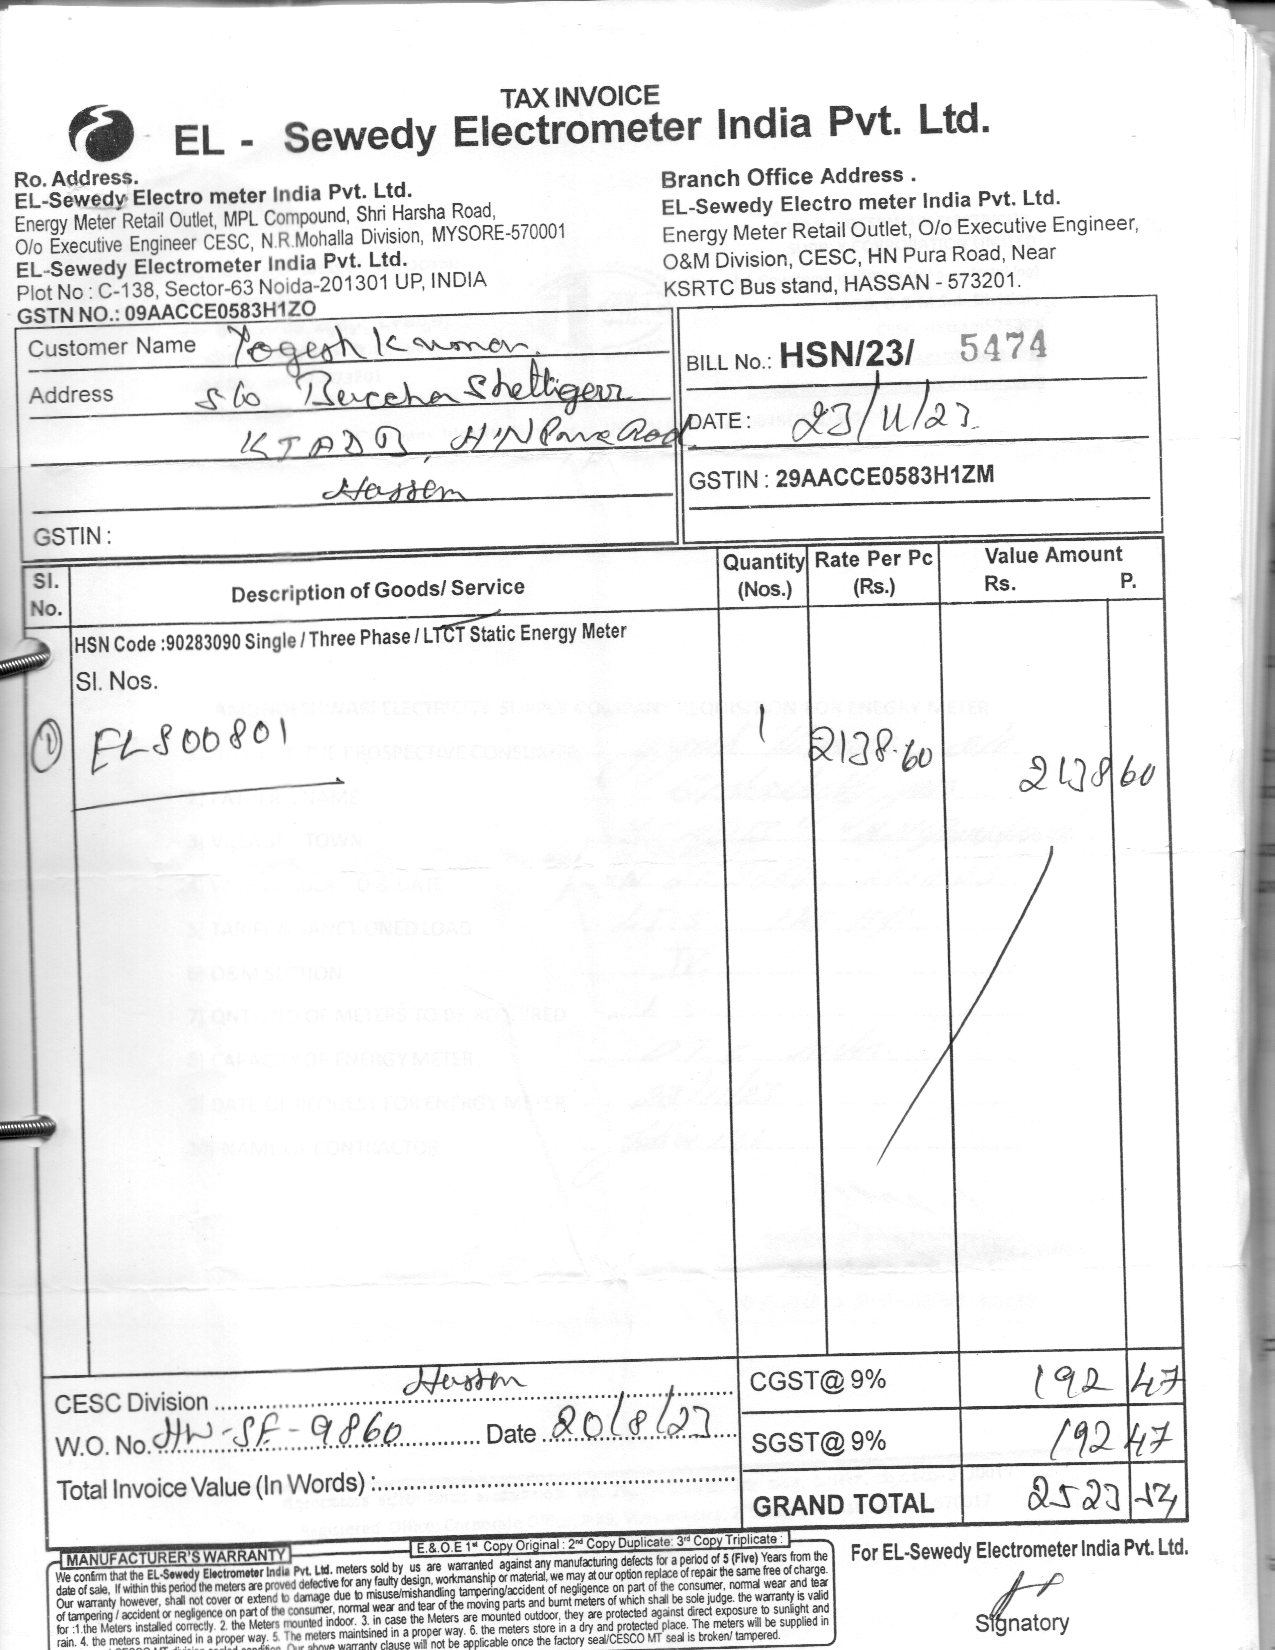 TAX INVOICE
EL - Sewedy Electrometer India Pvt. Ltd.
Ro. Address.
EL-Sewedy Electro meter India Pvt. Ltd.
Energy Meter Retail Outlet, MPL Compound, Shri Harsha Road,
O/o Executive Engineer CESC, N.R.Mohalla Division, MYSORE-570001
EL-Sewedy Electrometer India Pvt. Ltd.
Plot No : C-138, Sector-63 Noida-201301 UP, INDIA
GSTN NO.: 09AACCE0583H1ZO
Branch Office Address .
EL-Sewedy Electro meter India Pvt. Ltd.
Energy Meter Retail Outlet, O/o Executive Engineer,
O&M Division, CESC, HN Pura Road, Near
KSRTC Bus stand, HASSAN - 573201.
Customer Name Yogesh Kumar.
Address S/o
KIADB, HN Pura Road
Hassan
GSTIN :
BILL No.: HSN/23/ 5474
DATE : 23/11/23.
GSTIN : 29AACCE0583H1ZM
Sl. No. Description of Goods/ Service Quantity (Nos.) Rate Per Pc (Rs.) Value Amount Rs. P.
HSN Code :90283090 Single / Three Phase / LTCT Static Energy Meter
Sl. Nos.
1 ELS00801 1 2138.60 2138 60
CESC Division Hassan
W.O. No. HW-SF-9860 Date 20/8/23
Total Invoice Value (In Words) :
CGST@ 9% 192 47
SGST@ 9% 192 47
GRAND TOTAL 2523 54
E.& O.E 1st Copy Original : 2nd Copy Duplicate: 3rd Copy Triplicate :
MANUFACTURER'S WARRANTY
We confirm that the EL-Sewedy Electrometer India Pvt. Ltd. meters sold by us are warranted against any manufacturing defects for a period of 5 (Five) Years from the
date of sale, If within this period the meters are proved defective for any faulty design, workmanship or material, we may at our option replace of repair the same free of charge.
Our warranty however, shall not cover or extend to damage due to misuse/mishandling tampering/accident of negligence on part of the consumer, normal wear and tear
of tampering / accident or negligence on part of the consumer, normal wear and tear of the moving parts and burnt meters of which shall be sole judge. the warranty is valid
for :1.the Meters installed correctly. 2. the Meters mounted indoor. 3. in case the Meters are mounted outdoor, they are protected against direct exposure to sunlight and
rain. 4. the meters maintained in a proper way. 5. The meters maintsined in a proper way. 6. the meters store in a dry and protected place. The meters will be supplied in
Our above warranty clause will not be applicable once the factory seal/CESCO MT seal is broken/ tampered.
For EL-Sewedy Electrometer India Pvt. Ltd.
Signatory